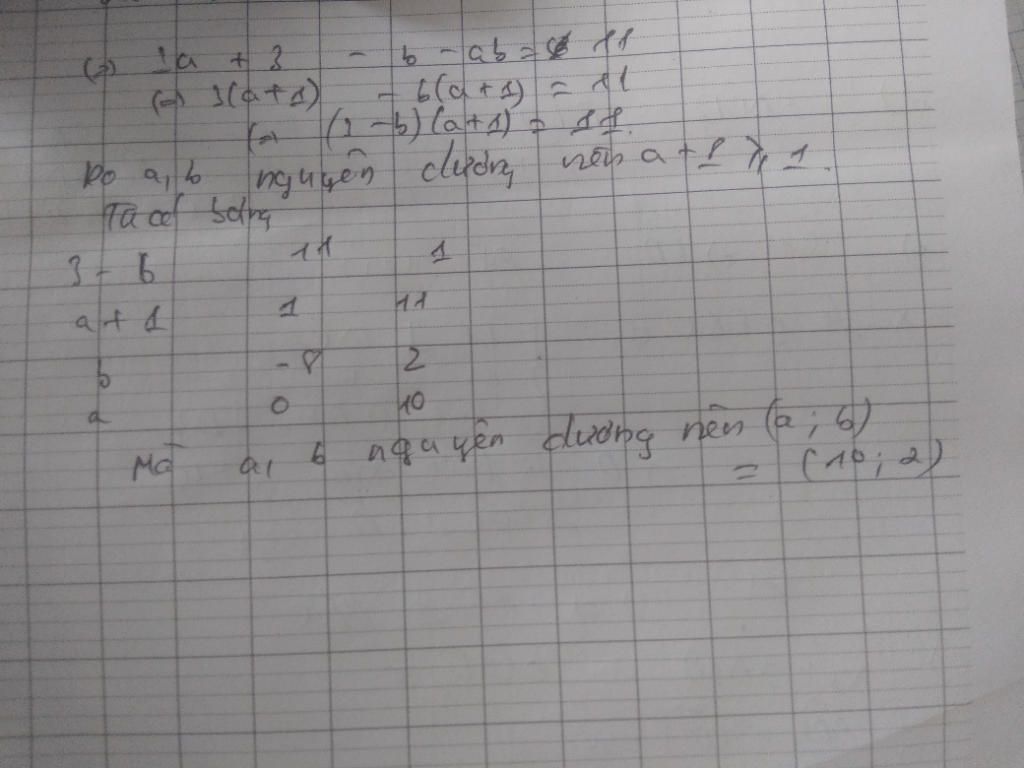 (=) 3a + 3 - b - ab = 11
(=) 3(a+1) - b(a+1) = 11
(=) (3-b)(a+1) = 11.
Do a, b nguyên dương nên a+1 ⩾ 1.
Ta có bảng
3 - b 11 1
a + 1 1 11
b -8 2
a 0 10
Mà a, b nguyên dương nên (a; b)
= (10; 2)